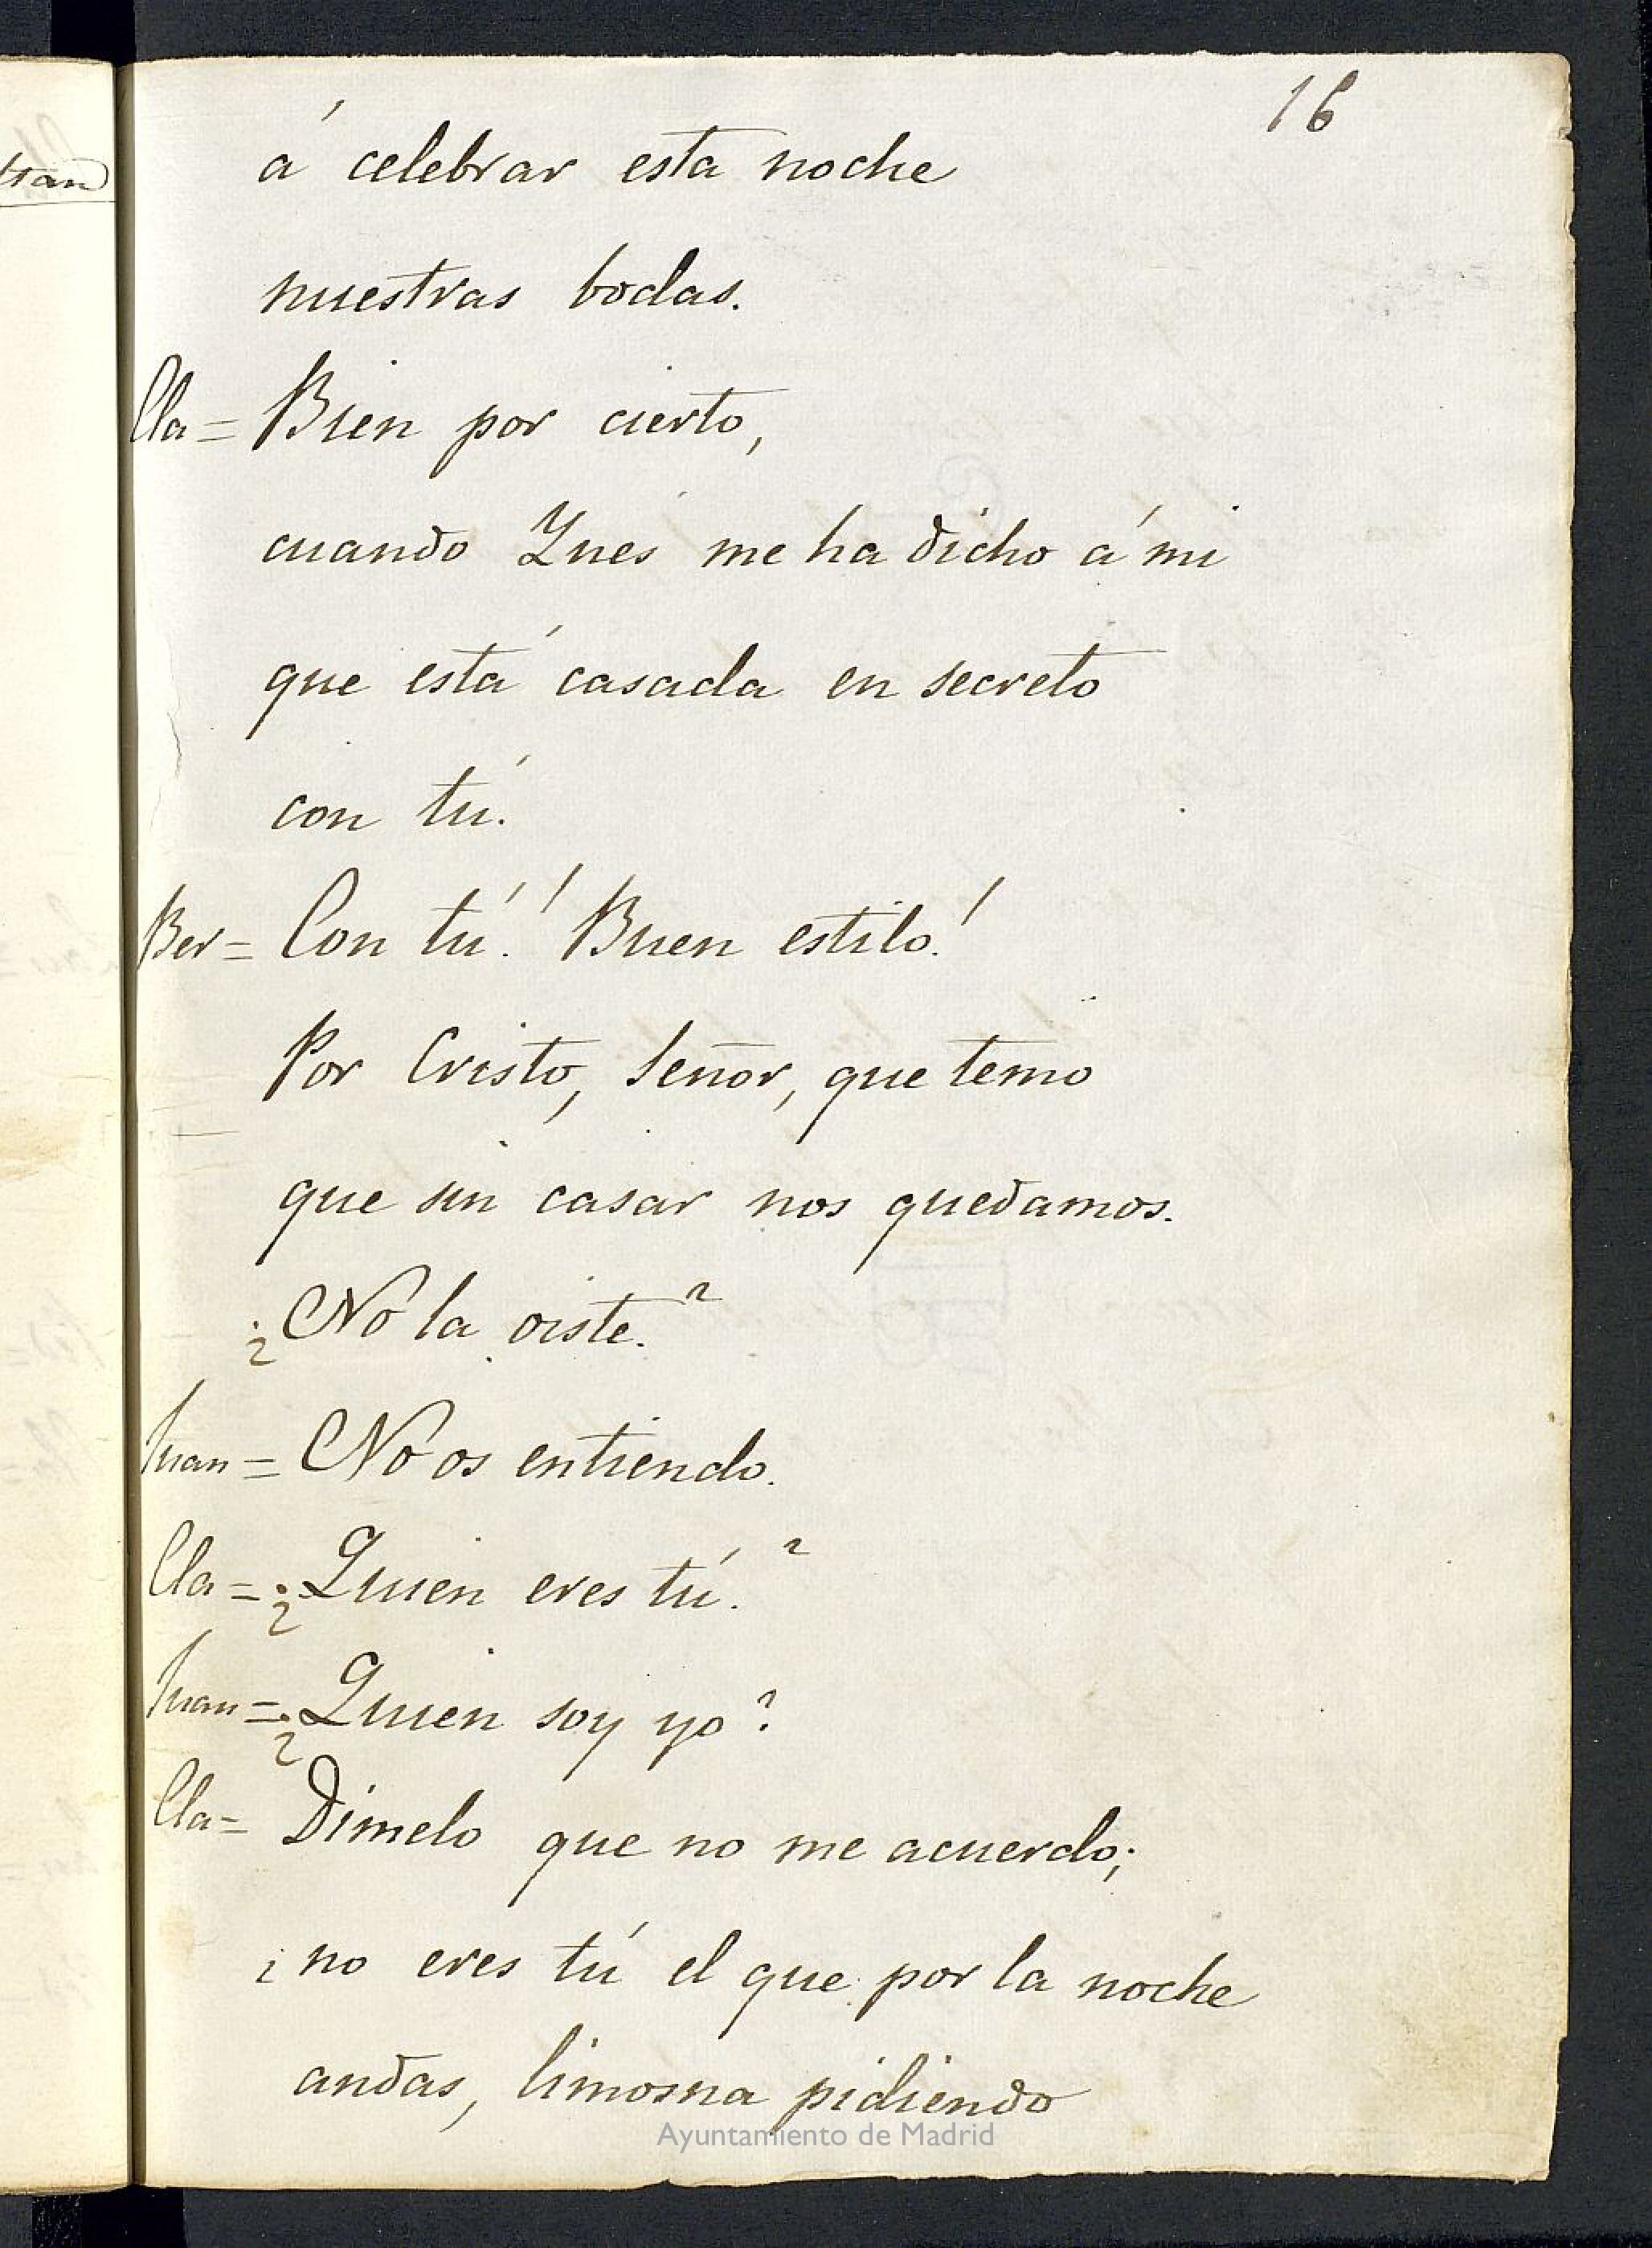 16
á celebrar esta noche
nuestras bodas.
Cla = Bien por cierto,
cuando Ynés me ha dicho á mi
que está casada en secreto
con tú.
Ber = Con tú! Buen estilo!
Por Cristo, Señor, que temo
que sin casar nos quedamos.
¿No la oiste?
Juan = No os entiendo.
Cla = ¿Quien eres tú?
Juan = ¿Quien soy yo?
Cla = Dimelo que no me acuerdo;
¿no eres tú el que por la noche
andas, limosna pidiendo
Ayuntamiento de Madrid